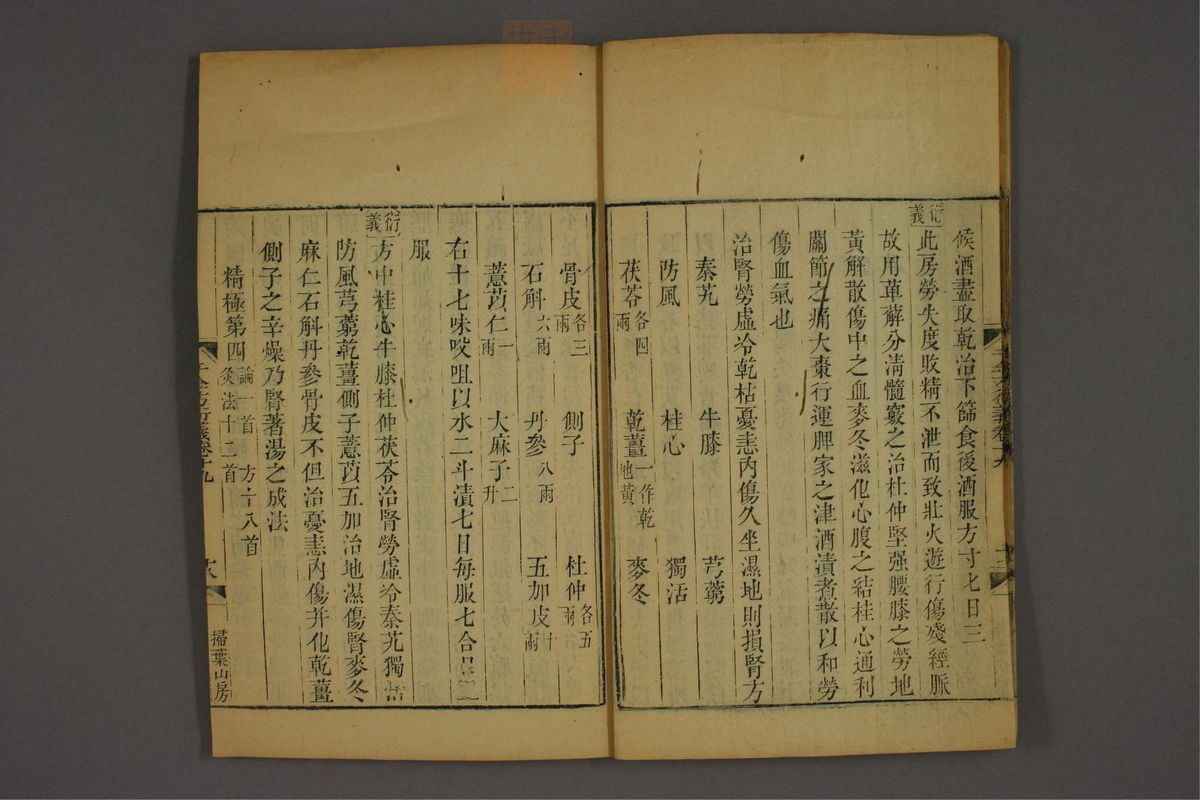 候酒盡取乾治下篩食後酒服方寸匕日三
衍義
此房勞失度敗精不泄而致壯火遊行傷殘經脈
故用萆薢分淸髓竅之治杜仲堅强腰膝之勞地
黃解散傷中之血麥冬滋化心腹之結桂心通利
關節之痛大棗行運脾家之津酒漬者散以和勞
傷血氣也
治腎勞虛冷乾枯憂恚內傷久坐濕地則損腎方
秦艽 牛膝 芎藭
防風 桂心 獨活
茯苓各四兩 乾薑一作乾地黃 麥冬
骨皮各三兩 側子 杜仲各五兩
石斛六兩 丹參八兩 五加皮十兩
薏苡仁一兩 大麻子二升
右十七味㕮咀以水二斗漬七日每服七合日二
服
衍義
方中桂心牛膝杜仲茯苓治腎勞虛冷秦艽獨活
防風芎藭乾薑側子薏苡五加治地濕傷腎麥冬
麻仁石斛丹參骨皮不但治憂恚內傷并化乾薑
側子之辛燥乃腎著湯之成法
精極第四論一首 方十八首 灸法十二首
掃葉山房